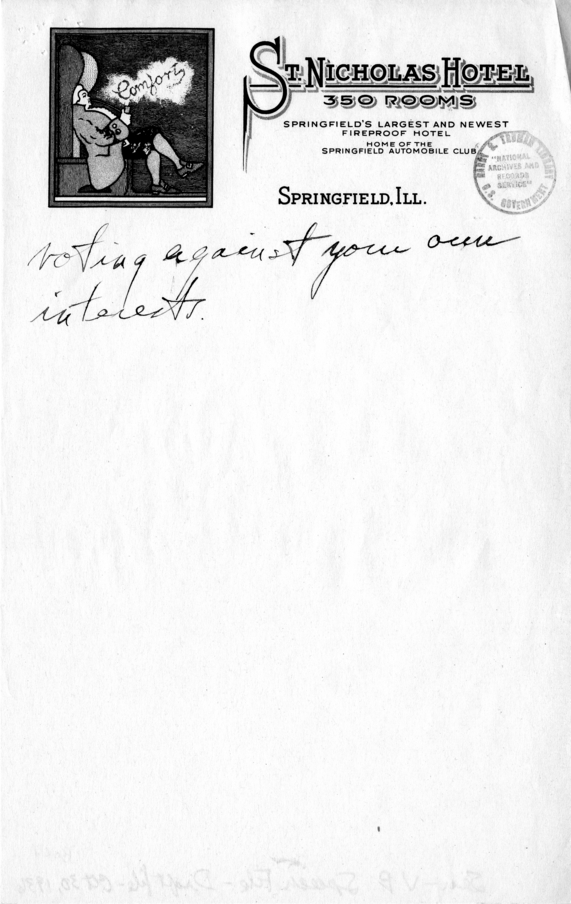 Comfort
ST. NICHOLAS HOTEL
350 ROOMS
SPRINGFIELD'S LARGEST AND NEWEST
FIREPROOF HOTEL
HOME OF THE
SPRINGFIELD AUTOMOBILE CLUB
SPRINGFIELD, ILL.
HARRY S. TRUMAN LIBRARY
"NATIONAL
ARCHIVES AND
RECORDS
SERVICE"
U.S. GOVERNMENT
voting against your own
interests.